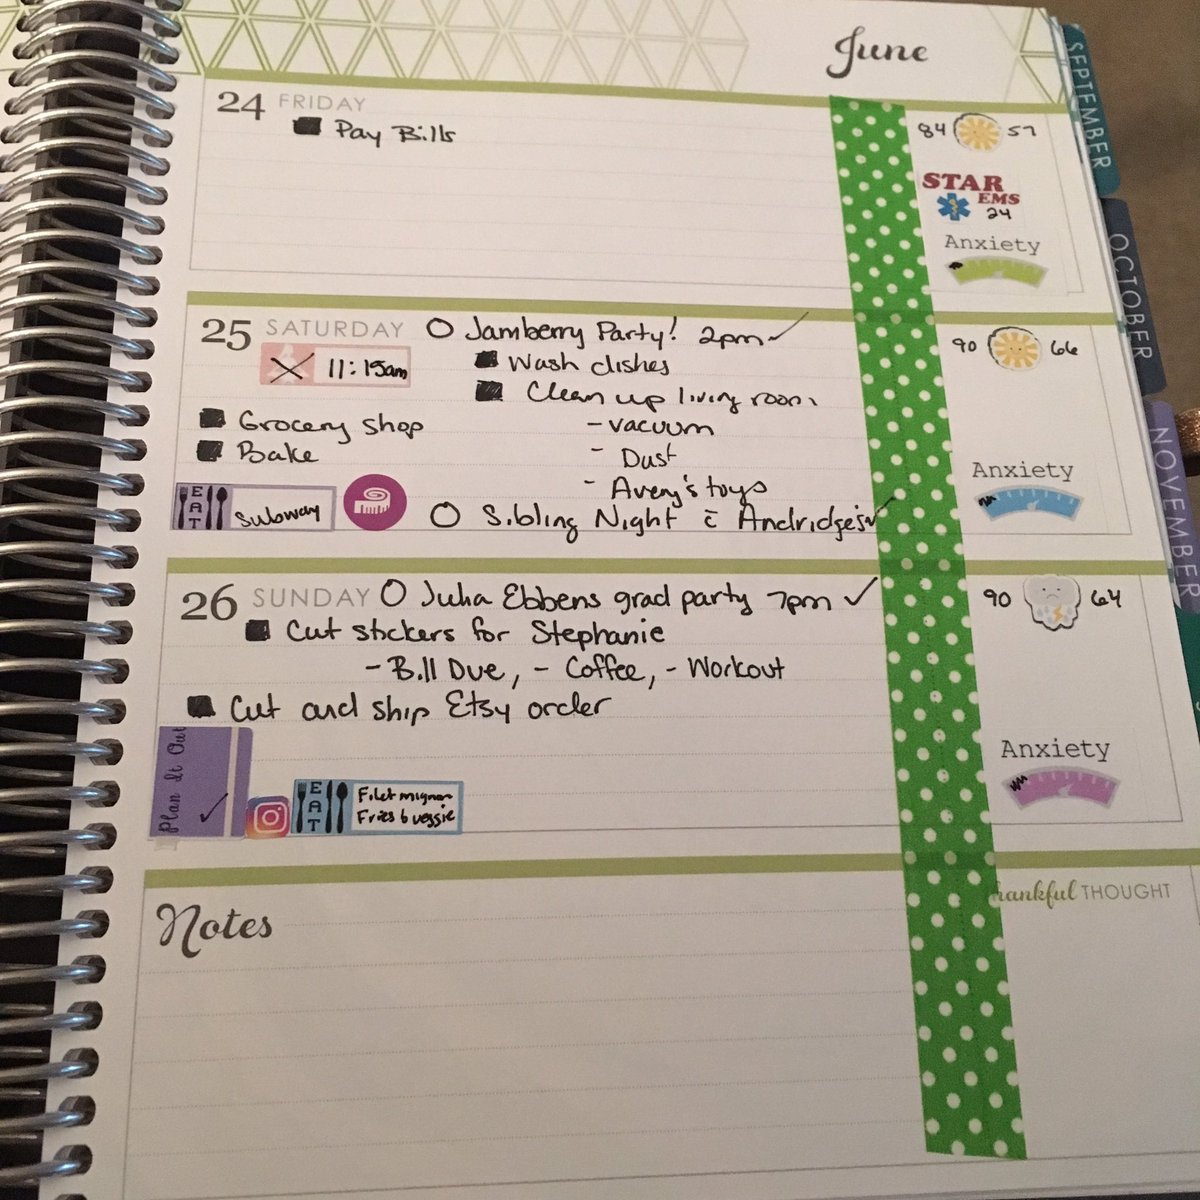 June
SEPTEMBER
OCTOBER
NOVEMBER
24 FRIDAY
Pay Bills
84 57
STAR
EMS
24
Anxiety
25 SATURDAY O Jamberry Party! 2pm ✓
11:15am
Wash dishes
Clean up living room
- vacuum
- Dust
- Avery's toys
Grocery shop
Bake
EAT Subway
O Sibling Night c̄ Andridge's ✓
90 66
Anxiety
26 SUNDAY O Julia Ebbens grad party 7pm ✓
Cut stickers for Stephanie
- Bill Due, - Coffee, - Workout
Cut and ship Etsy order
Plan It Out
✓
EAT Filet mignon
Fries & veggie
90 64
Anxiety
Notes
thankful THOUGHT